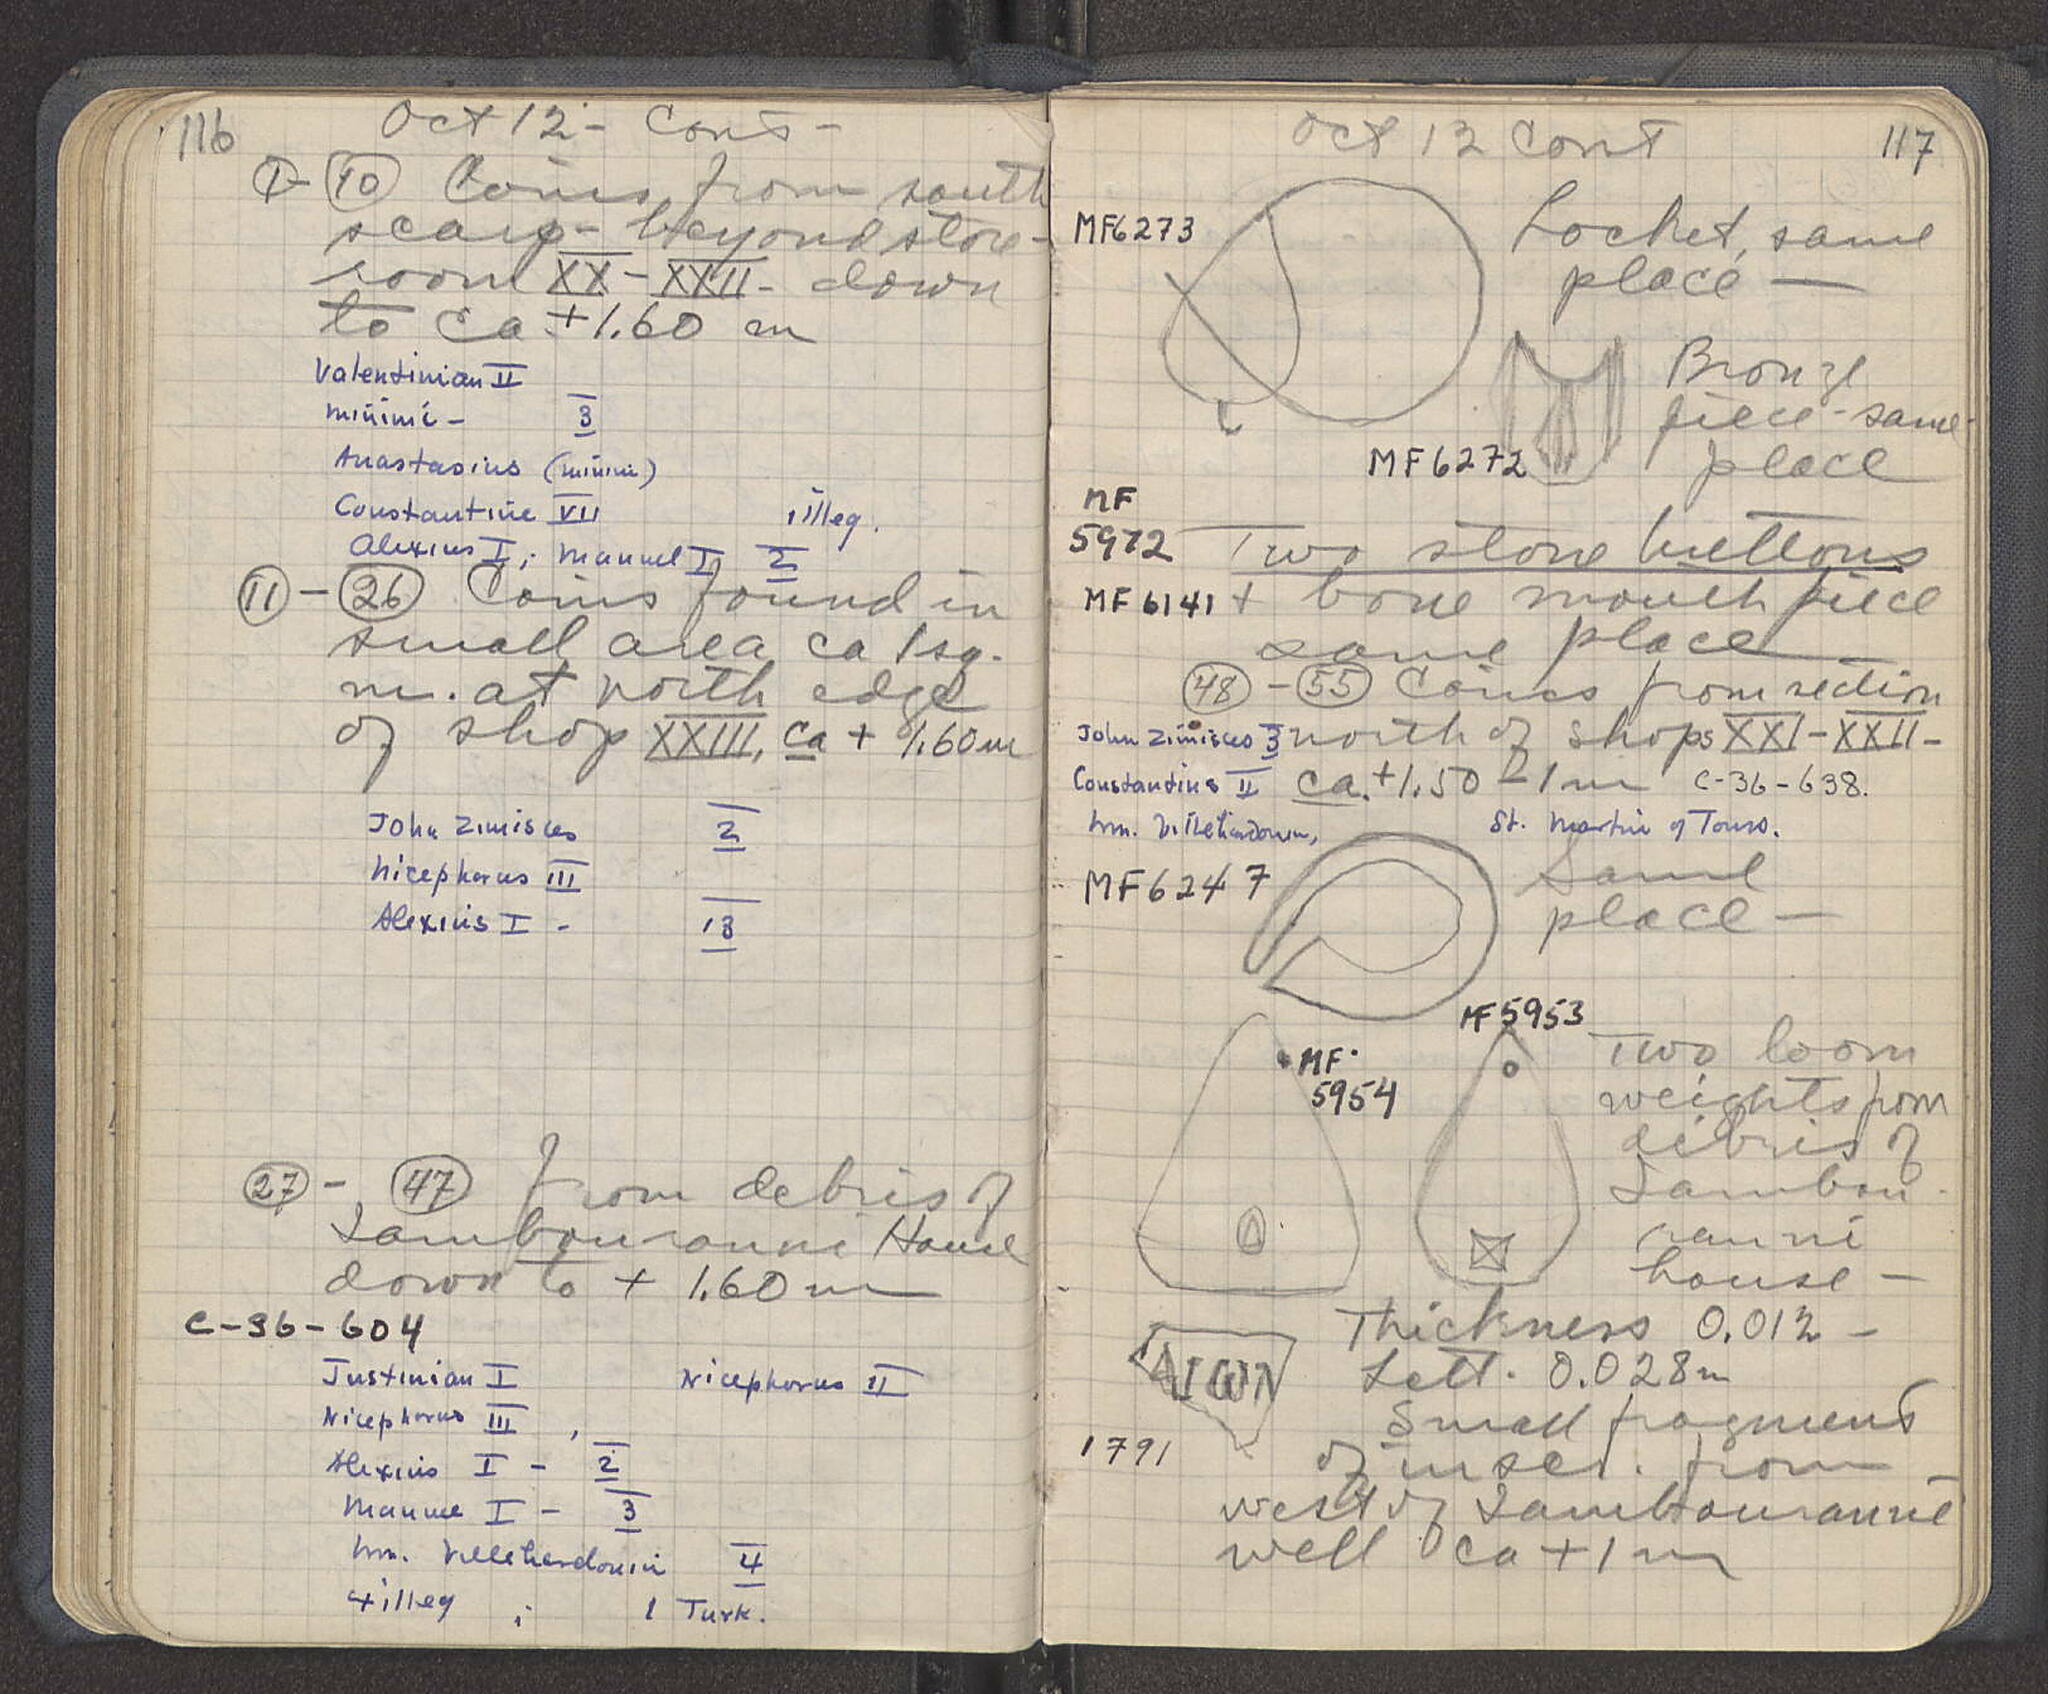 116
Oct 12 - Cont -
1 - 10 Coins from south
scarp - beyond store-
room XX - XXII - down
to ca + 1.60 m
Valentinian II
minimi - 3
Anastasius (minimi)
Constantine VII 1 illeg.
Alexius I ; Manuel I 2
11 - 26 Coins found in
small area ca 1 sq.
m. at north edge
of shop XXIII, ca + 1.60 m
John Zimisces 2
Nicephorus III
Alexius I - 13
27 - 47 From debris of
Lambouranni House
down to + 1.60 m
C-36-604
Justinian I Nicephorus II
Nicephorus III ,
Alexius I - 2
Manuel I - 3
Wm. Villehardouin 4
4 illeg ; 1 Turk.
Oct 12 Cont 117
MF6273
Locket, same
place —
Bronze
piece - same
place
MF6272
MF
5972 Two stone buttons
MF 6141 + bone mouth piece
same place
48 - 55 Coins from section
John Zimisces 3 north of shops XXI - XXII -
Constantius II ca. +1.50 - 1 m C-36-638.
Wm. Villehardouin, St. Martin of Tours.
MF6247
Same
place —
MF5953
MF
5954
Two loom
weights from
debris of
Lambou-
ranni
house —
Thickness 0.012 -
Lett. 0.028m
ΑΙΩΝ
Small fragment
1791 of inscr. from
west of Lambouranni
well ca + 1 m